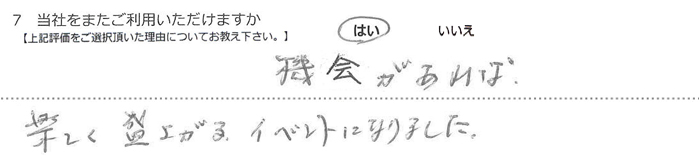 7 当社をまたご利用いただけますか はい いいえ
【上記評価をご選択頂いた理由についてお教え下さい。】
機会があれば.
楽しく盛上がるイベントになりました。